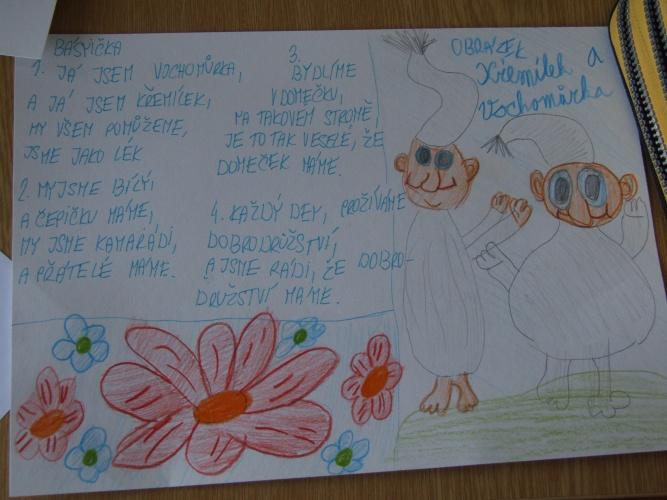 BÁSNIČKA
1. JÁ JSEM VOCHOMŮRKA,
A JÁ JSEM KŘEMÍLEK,
MY VŠEM POMŮŽEME,
JSME JAKO LÉK
2. MY JSME BÍLÝ,
A ČEPIČKU MÁME,
MY JSME KAMARÁDI,
A PŘÁTELÉ MÁME.
3.
BYDLÍME
V DOMEČKU,
NA TAKOVEM STROMĚ,
JE TO TAK VESELÉ, ŽE
DOMEČEK MÁME.
4. KAŽDÝ DEN, PROŽÍVÁME
DOBRODRŮŽSTVÍ,
A JSME RÁDI, ŽE DOBRO-
DRUŽSTVÍ MÁME.
OBRÁZEK
Křemílek a
Vochomůrka